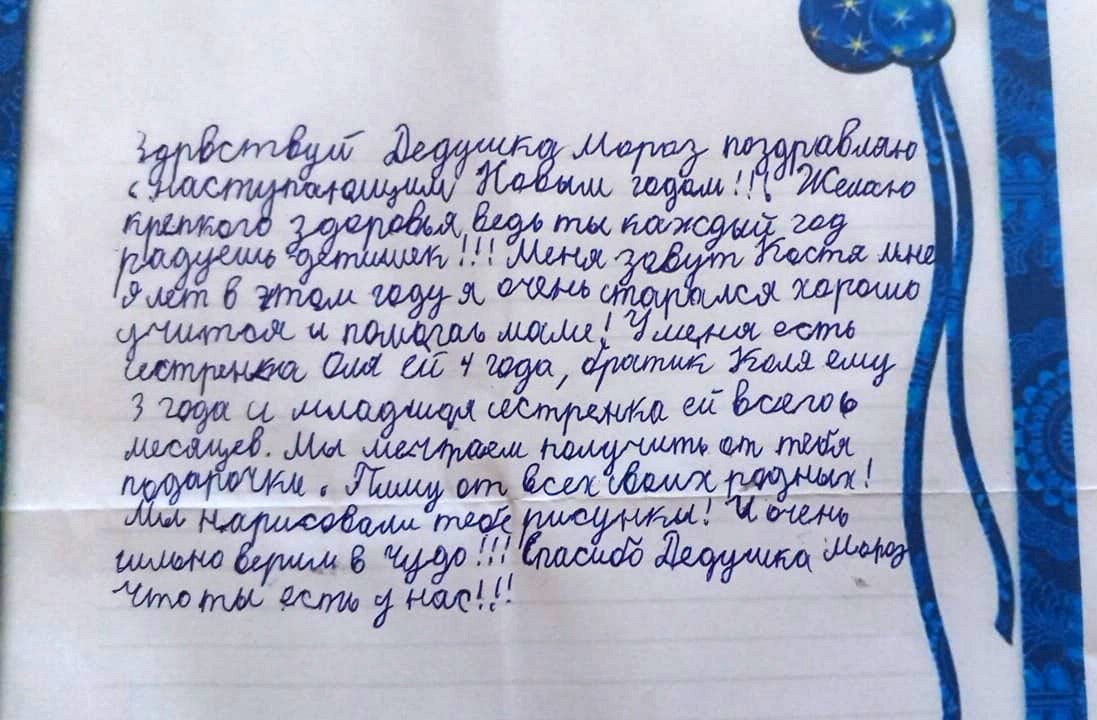 Здрвствуй Дедушка Мороз поздравляю
с наступающим Новым годом!!! Желаю
крепкого здоровья, ведь ты каждый год
радуешь детишек!!! Меня зовут Костя мне
9 лет в этом году я очень старался хорошо
учится и помогал маме! У меня есть
сестренка Оля ей 4 года, братик Коля ему
3 года и младшая сестренка ей всего 6
месяцев. Мы мечтаем получить от тебя
подарочки. Пишу от всех своих родных!
Мы нарисовали тебе рисунки! И очень
сильно верим в чудо!!! Спасибо Дедушка Мороз
что ты есть у нас!!!